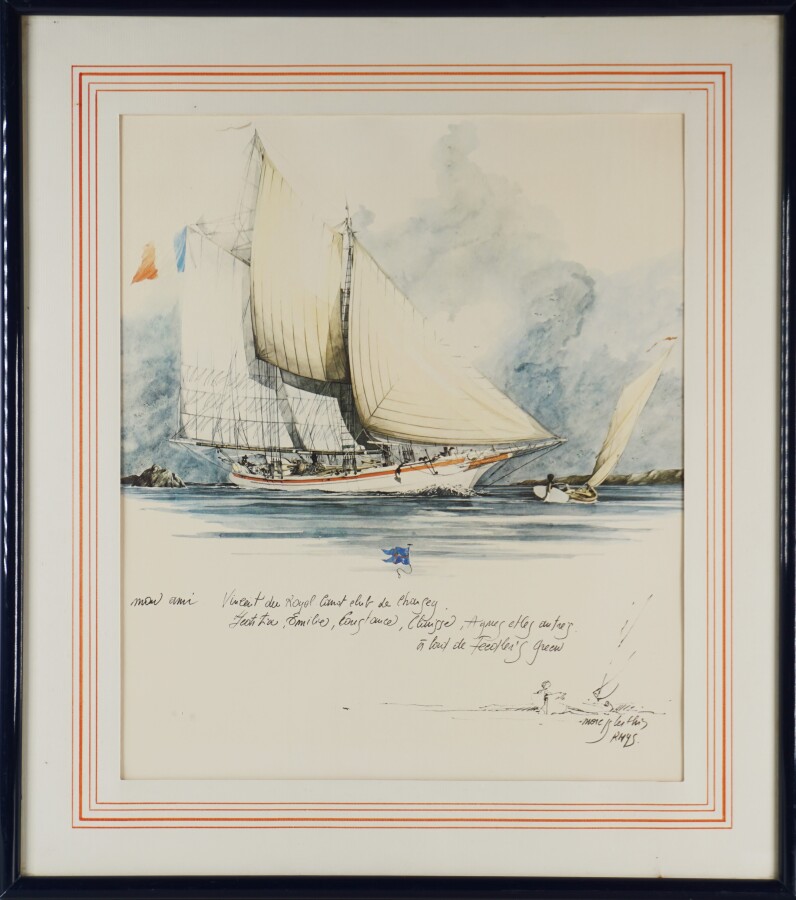 mon ami Vincent du Royal Canot club de Chausey.
Emilie, Constance, Clarisse, Agnes et les autres.
à bord de Feedler's Green
RNYS.